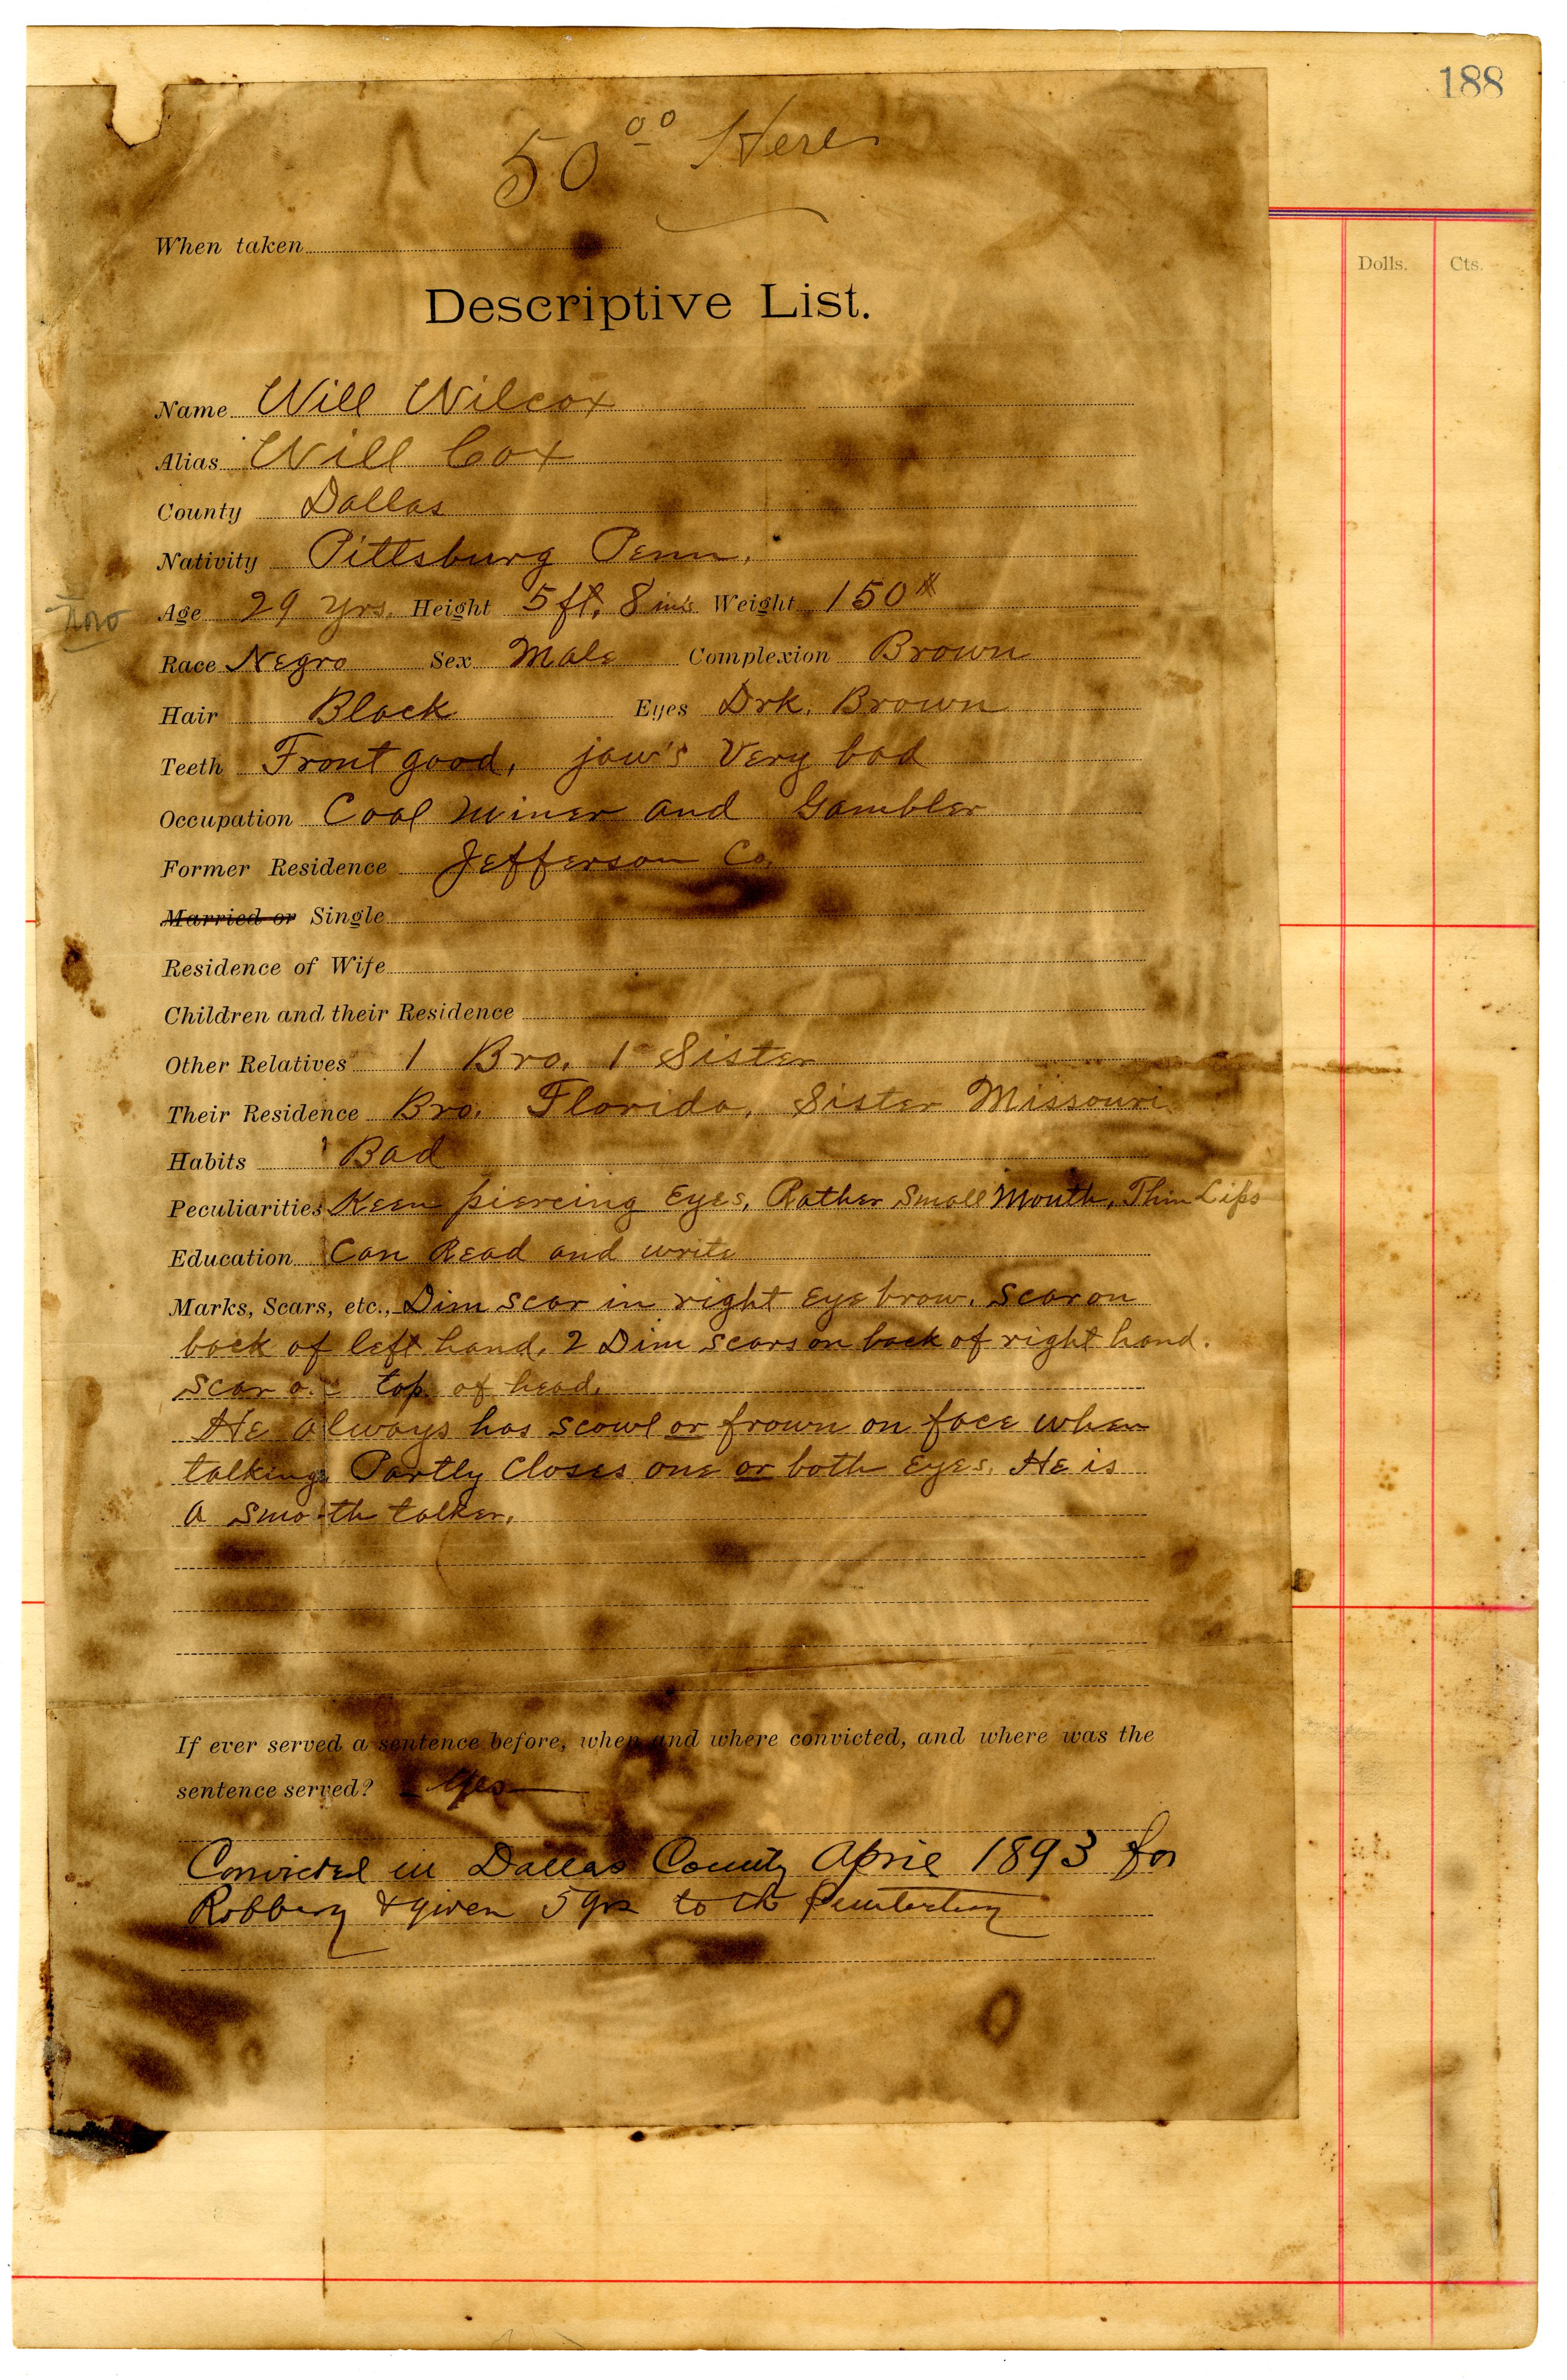 188
50 00 Here
When taken
Dolls. Cts.
Descriptive List.
Name Will Wilcox
Alias Will Cox
County Dallas
Nativity Pittsburg Penn.
Age 29 yrs. Height 5 ft. 8 in's Weight 150 #
Race Negro Sex Male Complexion Brown
Hair Black Eyes Drk. Brown
Teeth Front good, jaw's Very bad
Occupation Coal miner and Gambler
Former Residence Jefferson Co.
Married or Single
Residence of Wife
Children and their Residence
Other Relatives 1 Bro. 1 Sister
Their Residence Bro. Florida, Sister Missouri
Habits Bad
Peculiarities Keen piercing Eyes, Rather Small Mouth, Thin Lips
Education Can Read and write
Marks, Scars, etc., Dim scar in right Eye brow. Scar on
back of left hand. 2 Dim scars on back of right hand.
Scar top of head.
He always has scowl or frown on face when
talking. Partly Closes one or both Eyes. He is
a smooth talker.
If ever served a sentence before, when and where convicted, and where was the
sentence served? Yes
Convicted in Dallas County April 1893 for
Robbery & given 5 yrs to the Penitentiary